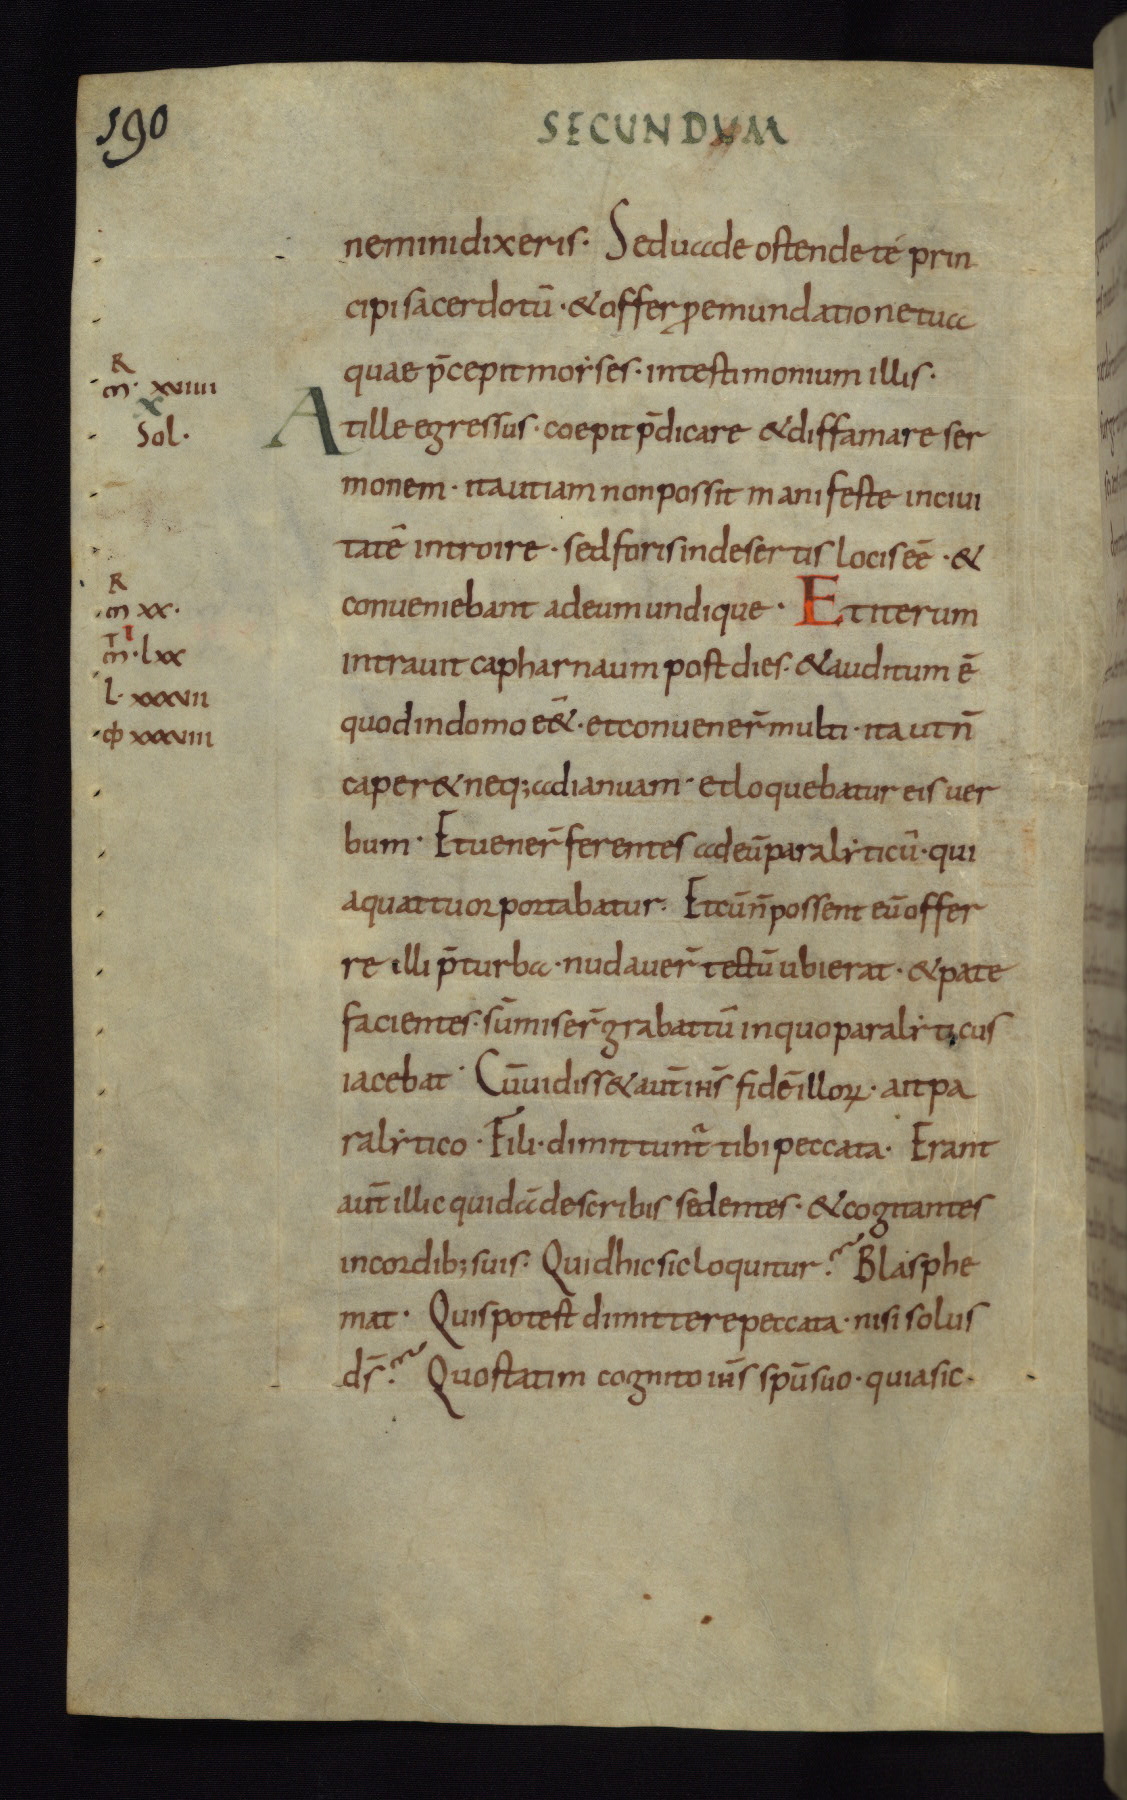 190
SECUNDUM
nemini dixeris. Sed uade ostende te prin
cipi sacerdotū · & offer p emundatione tua
quae p̄cepit moẏses · in testimonium illis ·
R
m · xviiii
x
Sol ·
At ille egressus · coepit p̄dicare & diffamare ser
monem · ita ut iam non possit manifeste in ciui
tatē introire · sed foris in desertis locis eē · &
R
m xx ·
conueniebant ad eum undique · Et iterum
T I
m̄ · lxx
intrauit capharnaum post dies · & auditum ē
L · xxxvii
quod in domo eē& · et conuener̄ multi · ita ut n̄
φ xxxviii
caper& neq; ad ianuam · et loquebatur eis uer
bum · Et uener̄ ferentes ad eū paralẏticū · qui
a quattuor portabatur · Et cū n̄ possent eū offer
re illi p̄ turba · nudauer̄ tectū ubi erat · & pate
facientes · sūmiser̄ grabattū in quo paralẏticus
iacebat · Cū uidiss& aut̄ ihs̄ fidē illoꝝ · ait pa
ralẏtico · Fili · dimittunt᷑ tibi peccata · Erant
aut̄ illic quidā de scribis sedentes · & cogitantes
in cordib; suis · Quid hic sic loquitur ? Blasphe
mat · Quis potest dimittere peccata · nisi solus
ds̄ ? Quo statim cognito ihs̄ spū suo · quia sic ·